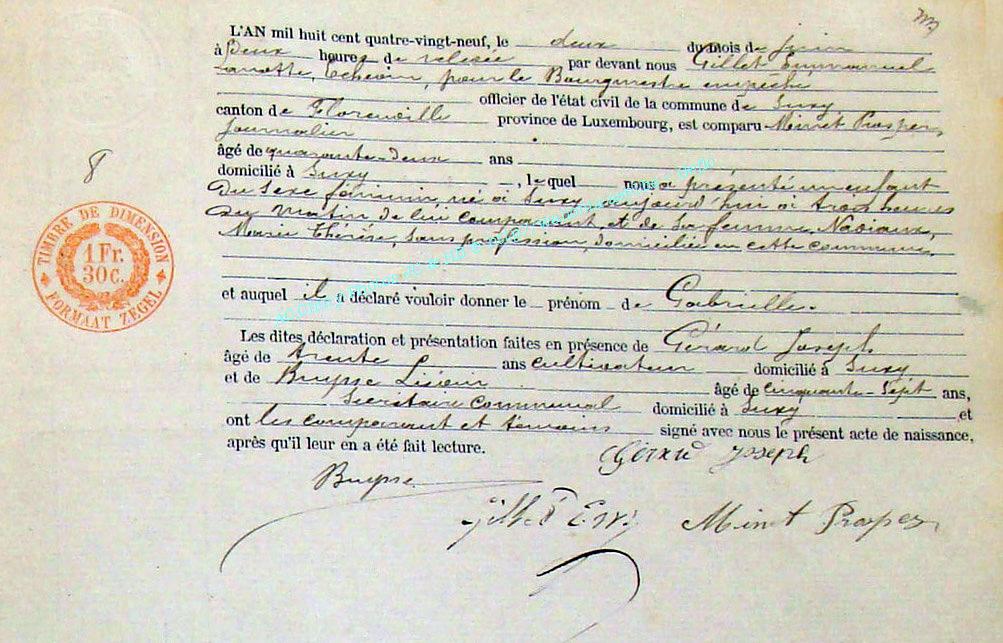 L'AN mil huit cent quatre-vingt-neuf, le deux du mois de juin
à Deux heures de relevée par devant nous Gillet Emmanuel
Echevin, pour le Bourgmestre empêché
officier de l'état civil de la commune de Suxy
canton de Florenville province de Luxembourg, est comparu Minet Prosper,
journalier
âgé de quarante-deux ans
domicilié à Suxy, lequel nous a présenté un enfant
du sexe féminin, né à Suxy aujourd'hui à trois heures
du matin de lui comparant, et de sa femme, Naviaux,
Marie Thérèse, sans profession, domiciliée en cette commune,
et auquel il a déclaré vouloir donner le prénom de Gabrielle.
Les dites déclaration et présentation faites en présence de Gérard Joseph
âgé de trente ans cultivateur domicilié à Suxy
et de Buysse âgé de cinquante-sept ans,
Secrétaire communal domicilié à Suxy et
ont les comparant et témoins signé avec nous le présent acte de naissance,
après qu'il leur en a été fait lecture.
Gérard Joseph
Buysse
Minet Prosper
8
TIMBRE DE DIMENSION
1 Fr.
30 c.
FORMAAT ZEGEL